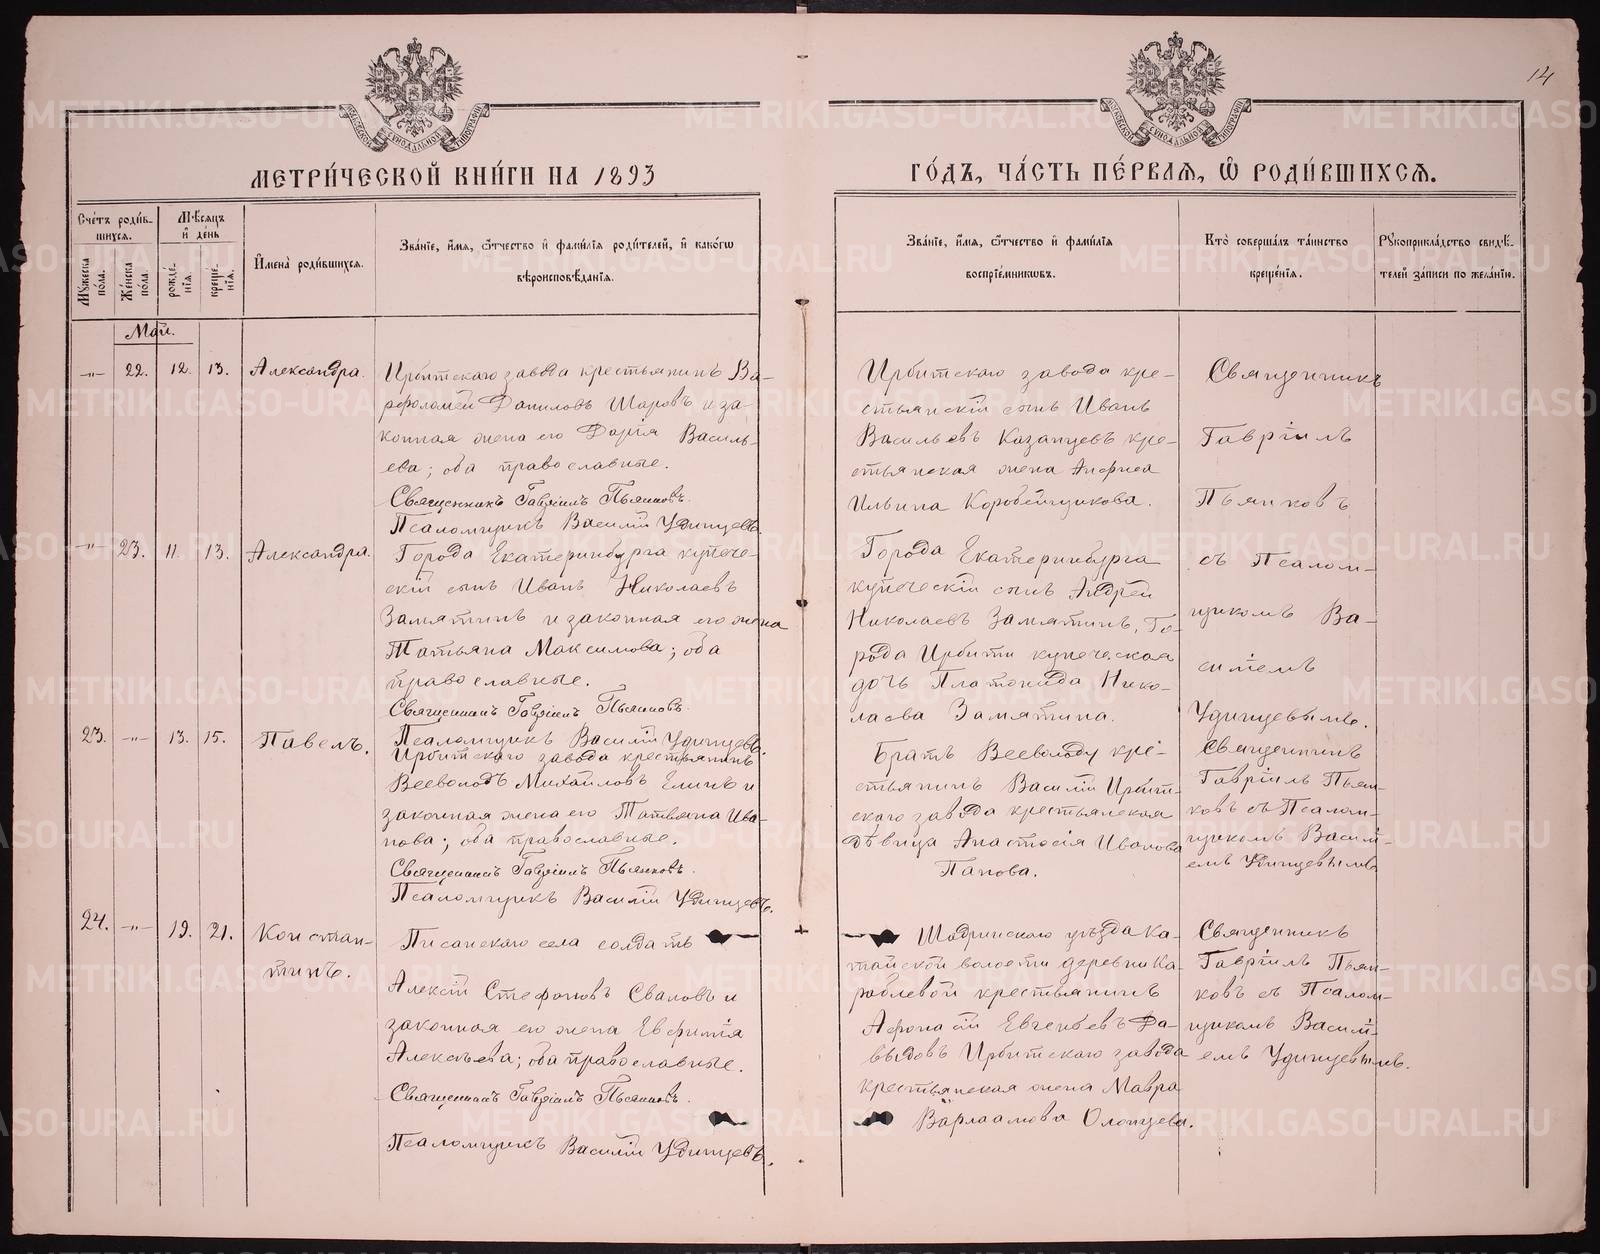 14
МЕТРИ́ЧЕСКОЙ КНИ́ГИ НА 1893
ГО́ДЪ, ЧА́СТЬ ПЕ́РВАѦ, Ѽ РОДИ́ВШИХСѦ.
Сче́тъ роди́в-
шихсѧ.
Мѣ́сѧцъ
и҆ де́нь
Мꙋ́жеска
пола.
Же́нска
пола.
рожде́-
нїѧ.
креще́-
нїѧ.
И҆мена̀ роди́вшихсѧ.
Зва́нїе, и҆́мѧ, ѻ҆́тчество и҆ фами́лїѧ роди́телей, и҆ како́гѡ
вѣроисповѣ́данїѧ.
Зва́нїе, и҆́мѧ, ѻ҆́тчество и҆ фами́лїѧ
воспрїе́мниковъ.
Кто̀ соверша́лъ та́инство
креще́нїѧ.
Рꙋкоприкла́дство свидѣ́-
телей за́писи по жела́нїю.
Май.
-"- 22. 12. 13. Александра.
Ирбитскаго завода крестьянинъ Ва-
рфоломей Даниловъ Шаровъ и за-
конная жена его Дарія Василь-
ева; оба православные.
Священникъ Гавріилъ Пьянковъ.
Псаломщикъ Василій Удинцевъ.
Ирбитскаго завода кре-
стьянскій сынъ Иванъ
Васильевъ Казанцевъ кре-
стьянская жена Анфиса
Ильина Коробейщикова.
Священникъ
Гавріилъ
Пьянковъ
съ Псалом-
щикомъ Ва-
силіемъ
Удинцевымъ.
-"- 23. 11. 13. Александра.
Города Екатеринбурга купече-
скій сынъ Иванъ Николаевъ
Замятинъ и законная его жена
Татьяна Максимова; оба
православные.
Священникъ Гавріилъ Пьянковъ.
Псаломщикъ Василій Удинцевъ.
Города Екатеринбурга
купеческій сынъ Андрей
Николаевъ Замятинъ, Го-
рода Ирбити купеческая
дочь Платонида Нико-
лаева Замятина.
23. -"- 13. 15. Павелъ.
Ирбитскаго завода крестьянинъ
Всеволодъ Михайловъ Елинъ и
законная жена его Татьяна Ива-
нова; оба православные.
Священникъ Гавріилъ Пьянковъ.
Псаломщикъ Василій Удинцевъ.
Братъ Всеволоду кре-
стьянинъ Василій Ирбит-
скаго завода крестьянская
дѣвица Анастасія Иванова
Панова.
Священникъ
Гавріилъ Пьян-
ковъ съ Псалом-
щикомъ Василі-
емъ Удинцевымъ.
24. -"- 19. 21. Констан-
тинъ.
Писанскаго села солдатъ
Алексій Стефановъ Сваловъ и
законная его жена Евфимія
Алексѣева; оба православные.
Священникъ Гавріилъ Пьянковъ.
Псаломщикъ Василій Удинцевъ.
Шадринскаго уѣзда Ка-
тайской волости деревни Ка-
раблевой крестьянинъ
Афонасій Евгеньевъ Да-
выдовъ Ирбитскаго завода
крестьянская жена Мавра
Варлаамова Олонцева.
Священникъ
Гавріилъ Пьян-
ковъ съ Псалом-
щикомъ Василі-
емъ Удинцевымъ.